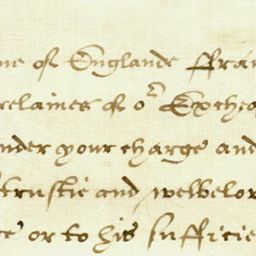 ne of Englande ffra
relaines of oʳ Excheq
nder your charge and
trustie and welbelo
e or to his sufficie